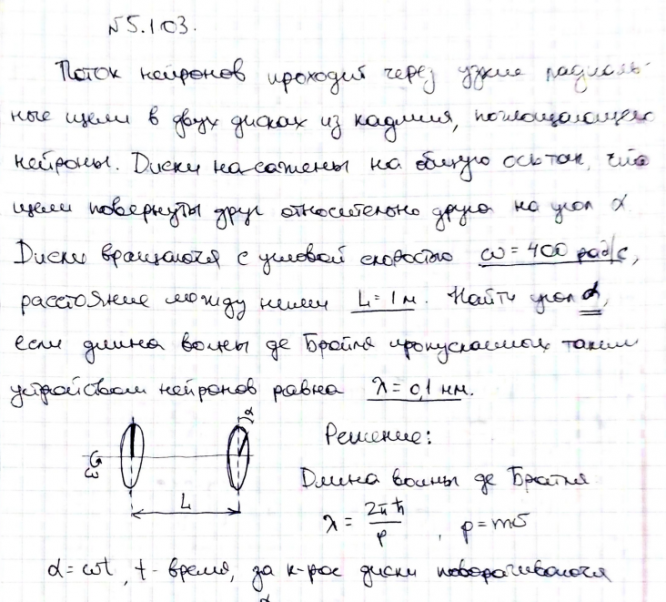 №5.103.
Поток нейронов проходит через узкие радиаль-
ные щели в двух дисках из кадмия, поглощающего
нейроны. Диски насажены на общую ось так, что
щели повернуты друг относительно друга на угол α
Диски вращаются с угловой скоростью ω = 400 рад/с,
расстояние между ними L = 1 м. Найти угол α,
если длина волны де Бройля пропускаемых таким
устройством нейронов равна λ = 0,1 нм.
α
ω
L
Решение:
Длина волны де Бройля
λ = 2πħ/p , p = mυ
α = ωt, t - время, за к-рое диски поворачиваются